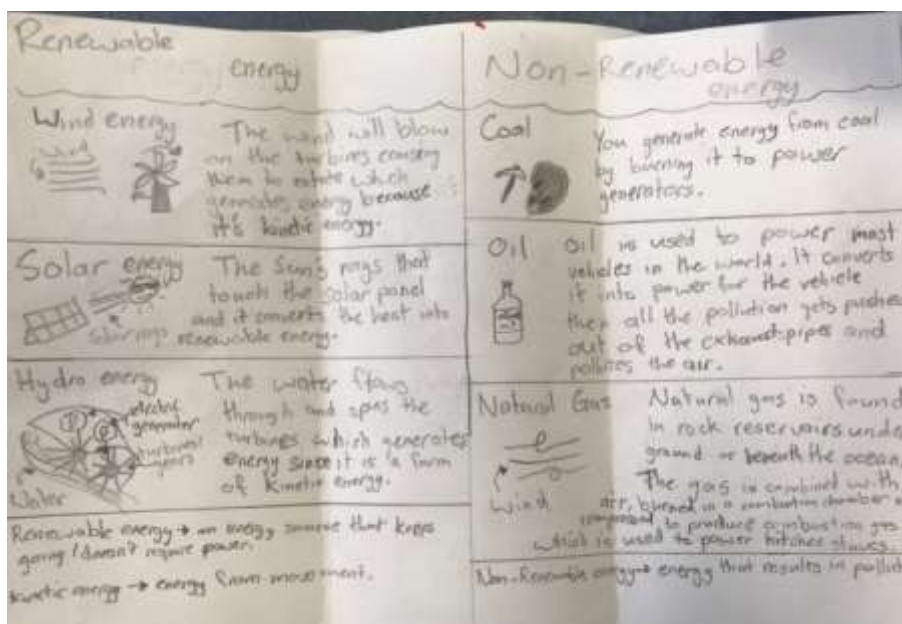 Renewable
energy
Wind energy
wind
The wind will blow
on the turbines causing
them to rotate which
generates energy because
it's kinetic energy.
Solar energy
Solar rays
The Sun's rays that
touch the solar panel
and it converts the heat into
renewable energy.
Hydro energy
electric
generator
turbines/
gears
Water
The water flows
through and spins the
turbines which generates
energy since it is a form
of Kinetic energy.
Renewable energy → an energy source that keeps
going / doesn't require power.
kinetic energy → energy from movement.
Non-Renewable
energy
Coal
You generate energy from coal
by burning it to power
generators.
Oil
Oil is used to power most
vehicles in the world. It converts
it into power for the vehicle
then all the pollution gets pushed
out of the exhaust pipes and
pollutes the air.
Natural Gas
wind
Natural gas is found
in rock reservoirs under
ground or beneath the ocean.
The gas is combined with
air, burned in a combustion chamber
to produce combustion gas
which is used to power kitchen stoves.
Non-Renewable energy → energy that results in